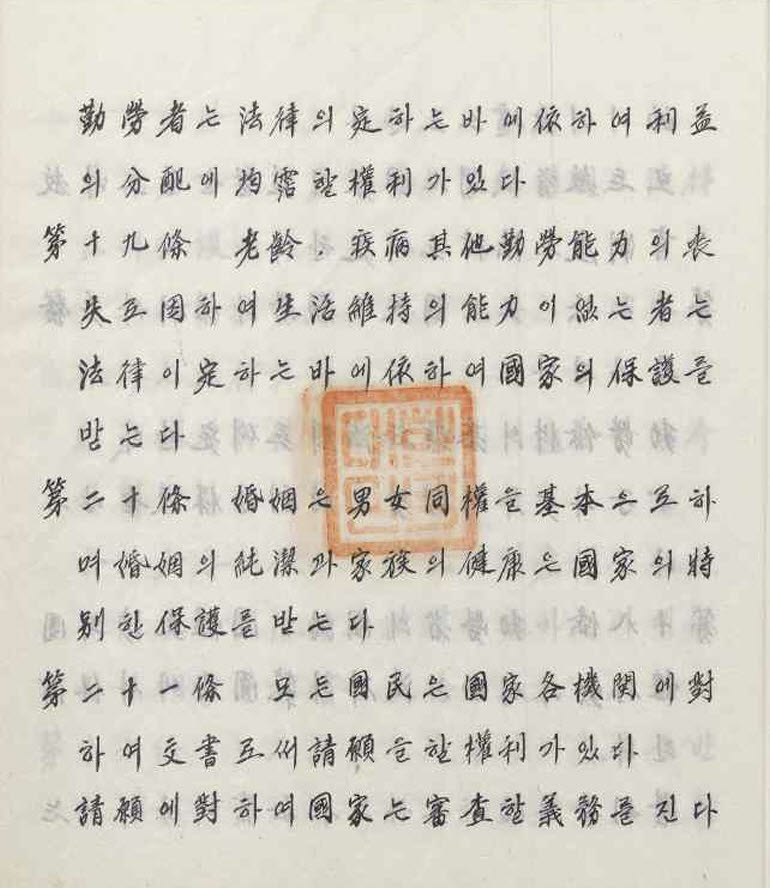 勤勞者는 法律의 定하는바에依하여利益
의分配에均霑할權利가있다
第十九條 老齡, 疾病其他勤勞能力의喪
失로因하여生活維持의能力이없는者는
法律이定하는바에依하여國家의保護를
받는다
第二十條 婚姻은男女同權을基本으로하
며婚姻의純潔과家族의健康은國家의特
別한保護를받는다
第二十一條 모든國民은國家各機関에對
하여文書로써請願을할權利가있다
請願에對하여國家는審査할義務를진다